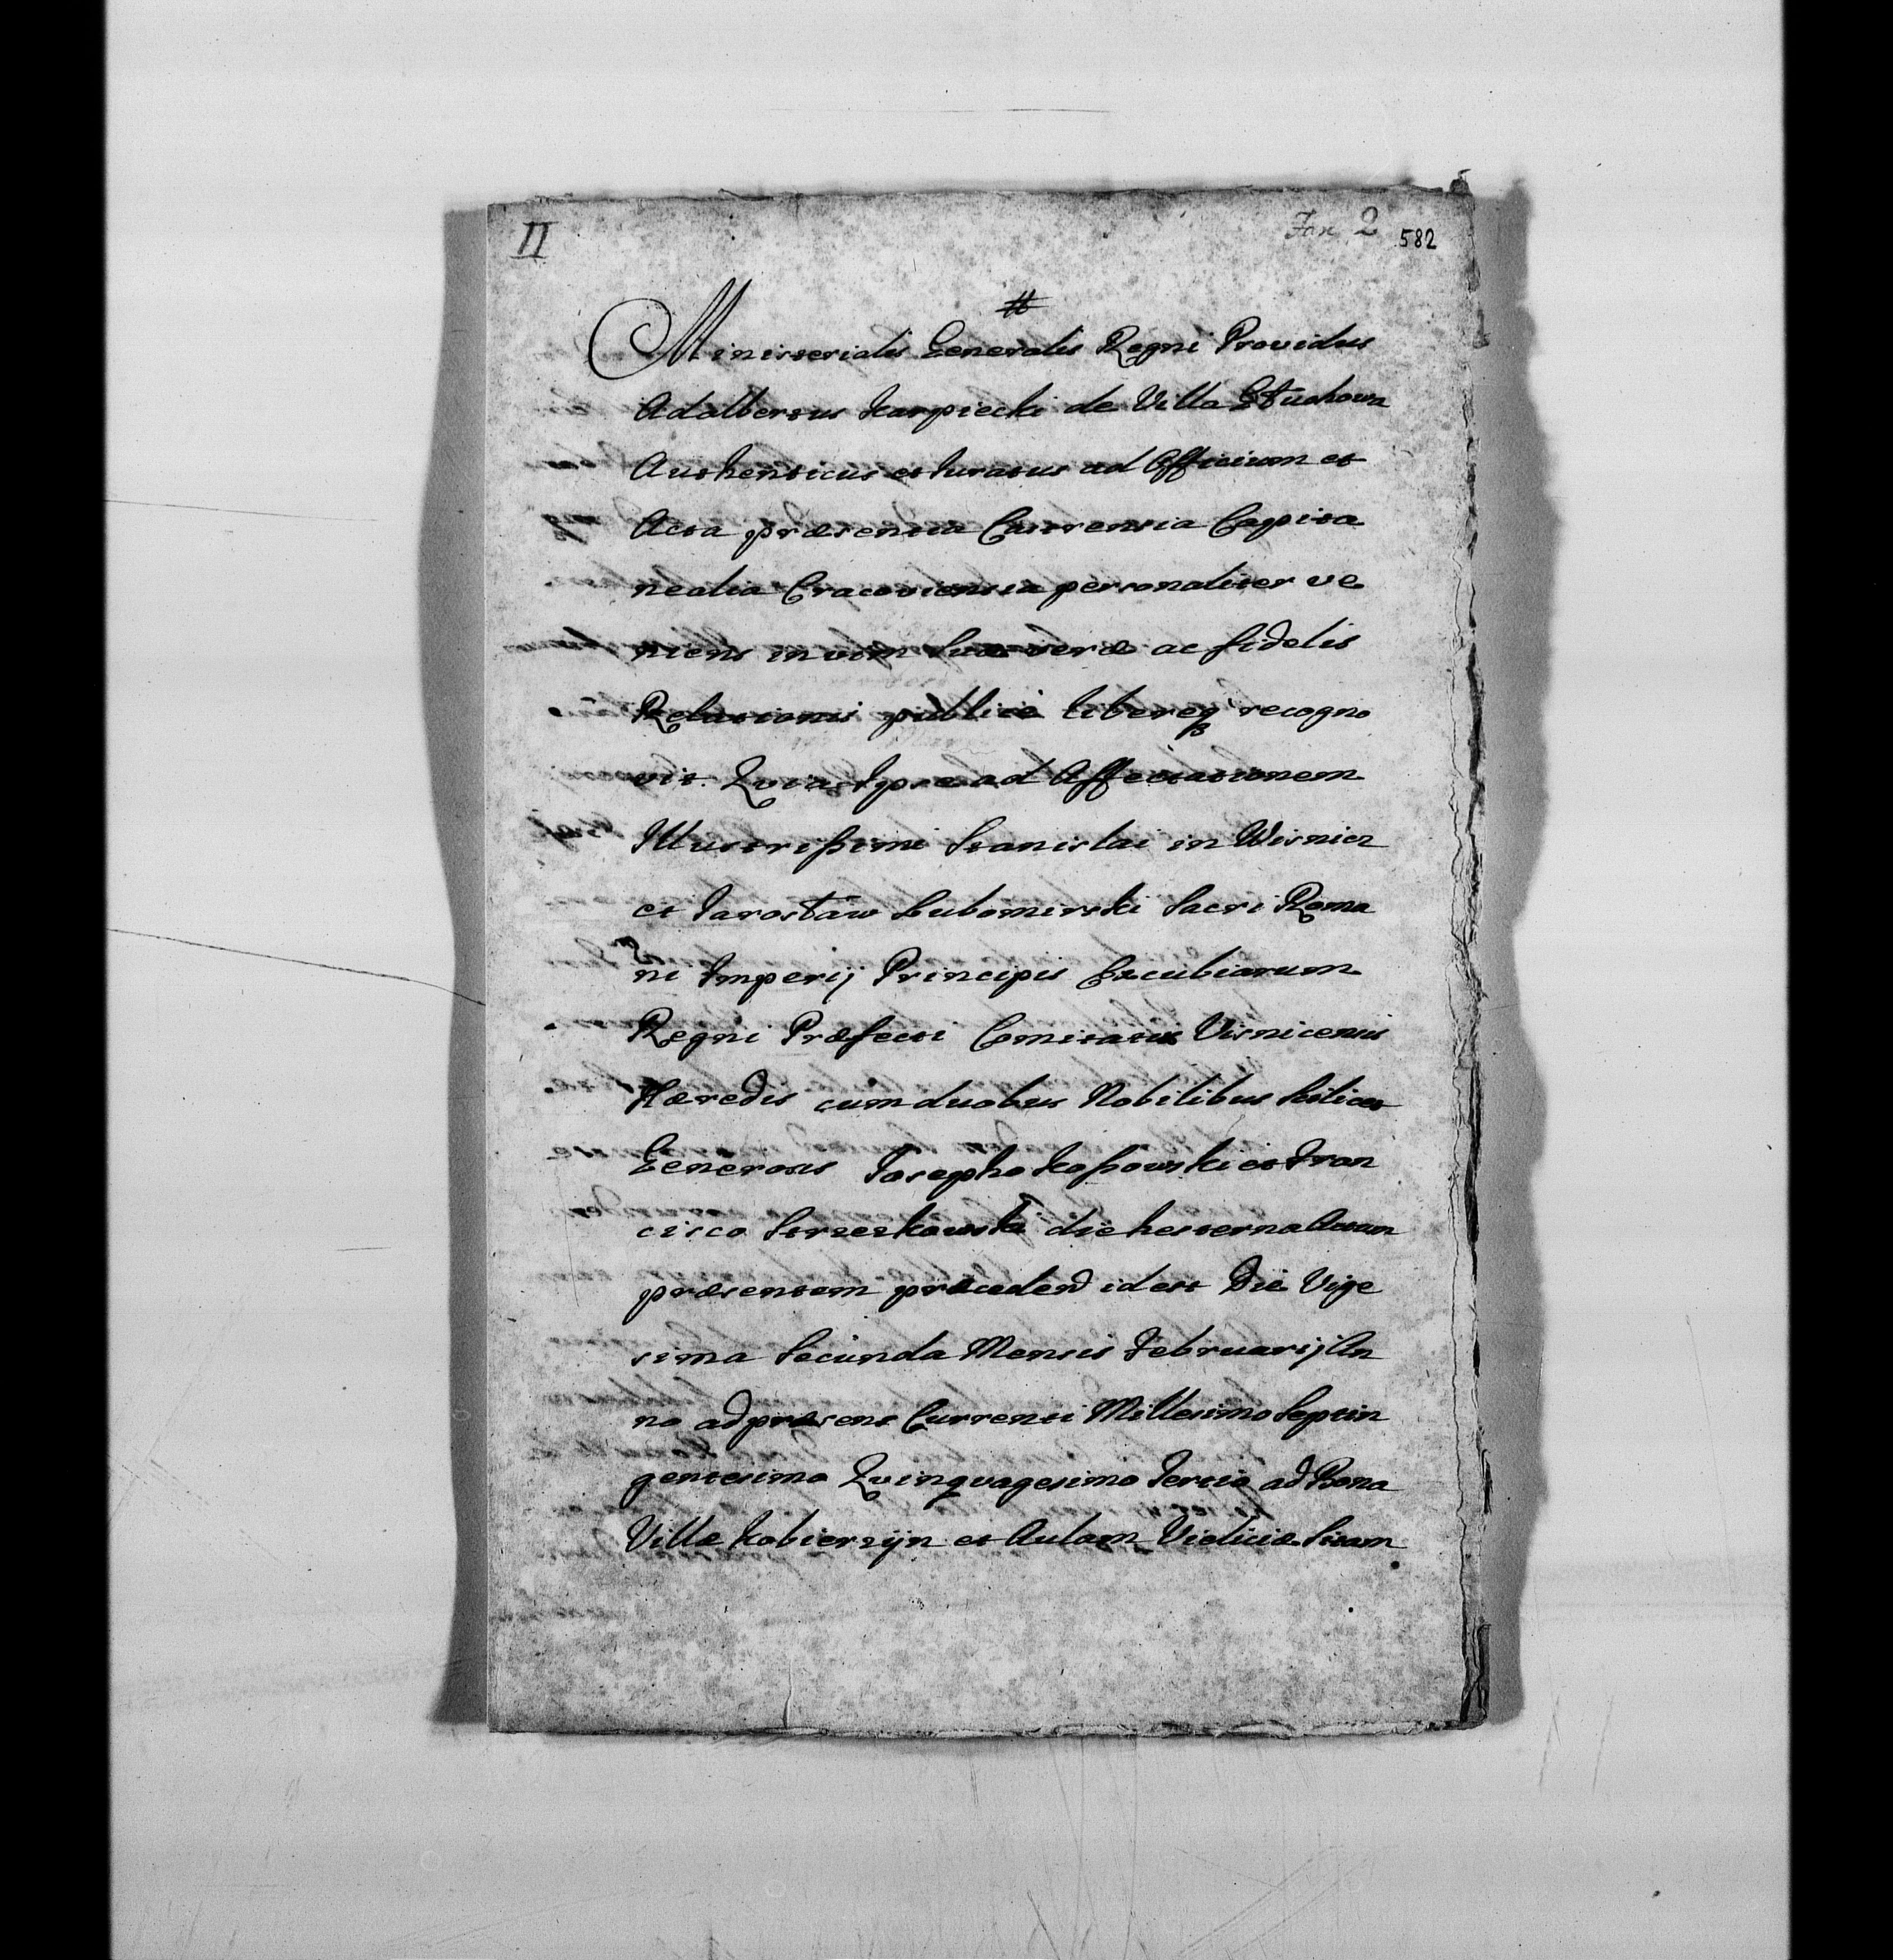 II
Jan 2 582
#
Ministerialis Generalis Regni Providus
Adalbertus Karpiecki de Villa
Authenticus et Iuratus ad Officium et
Acta præsentia Castrensia Capita
nealia Cracoviensia personaliter ve
niens in vim suæ veræ ac fidelis
Relationis publicè libereq recogno
vit. Quia Ipse ad Affectationem
Illustrißimi Stanislai in Wisnicz
et Jarosław Lubomirski Sacri Roma
ni Imperij Principis Excubiarum
Regni Præfecti Comitatus Visnicensis
Hæredis cum duobus Nobilibus scilicet
Generosis Josepho Koßowski et Fran
cisco Strzeszkowski die hesterna Actum
præsentem præceden idest Die Vige
sima Secunda Mensis Februarij An
no ad præsens Currenti Millesimo Septin
gentesimo Quinquagesimo Tertio ad Bona
Villæ Kobierzyn et Aulam Vieliciæ Sitam